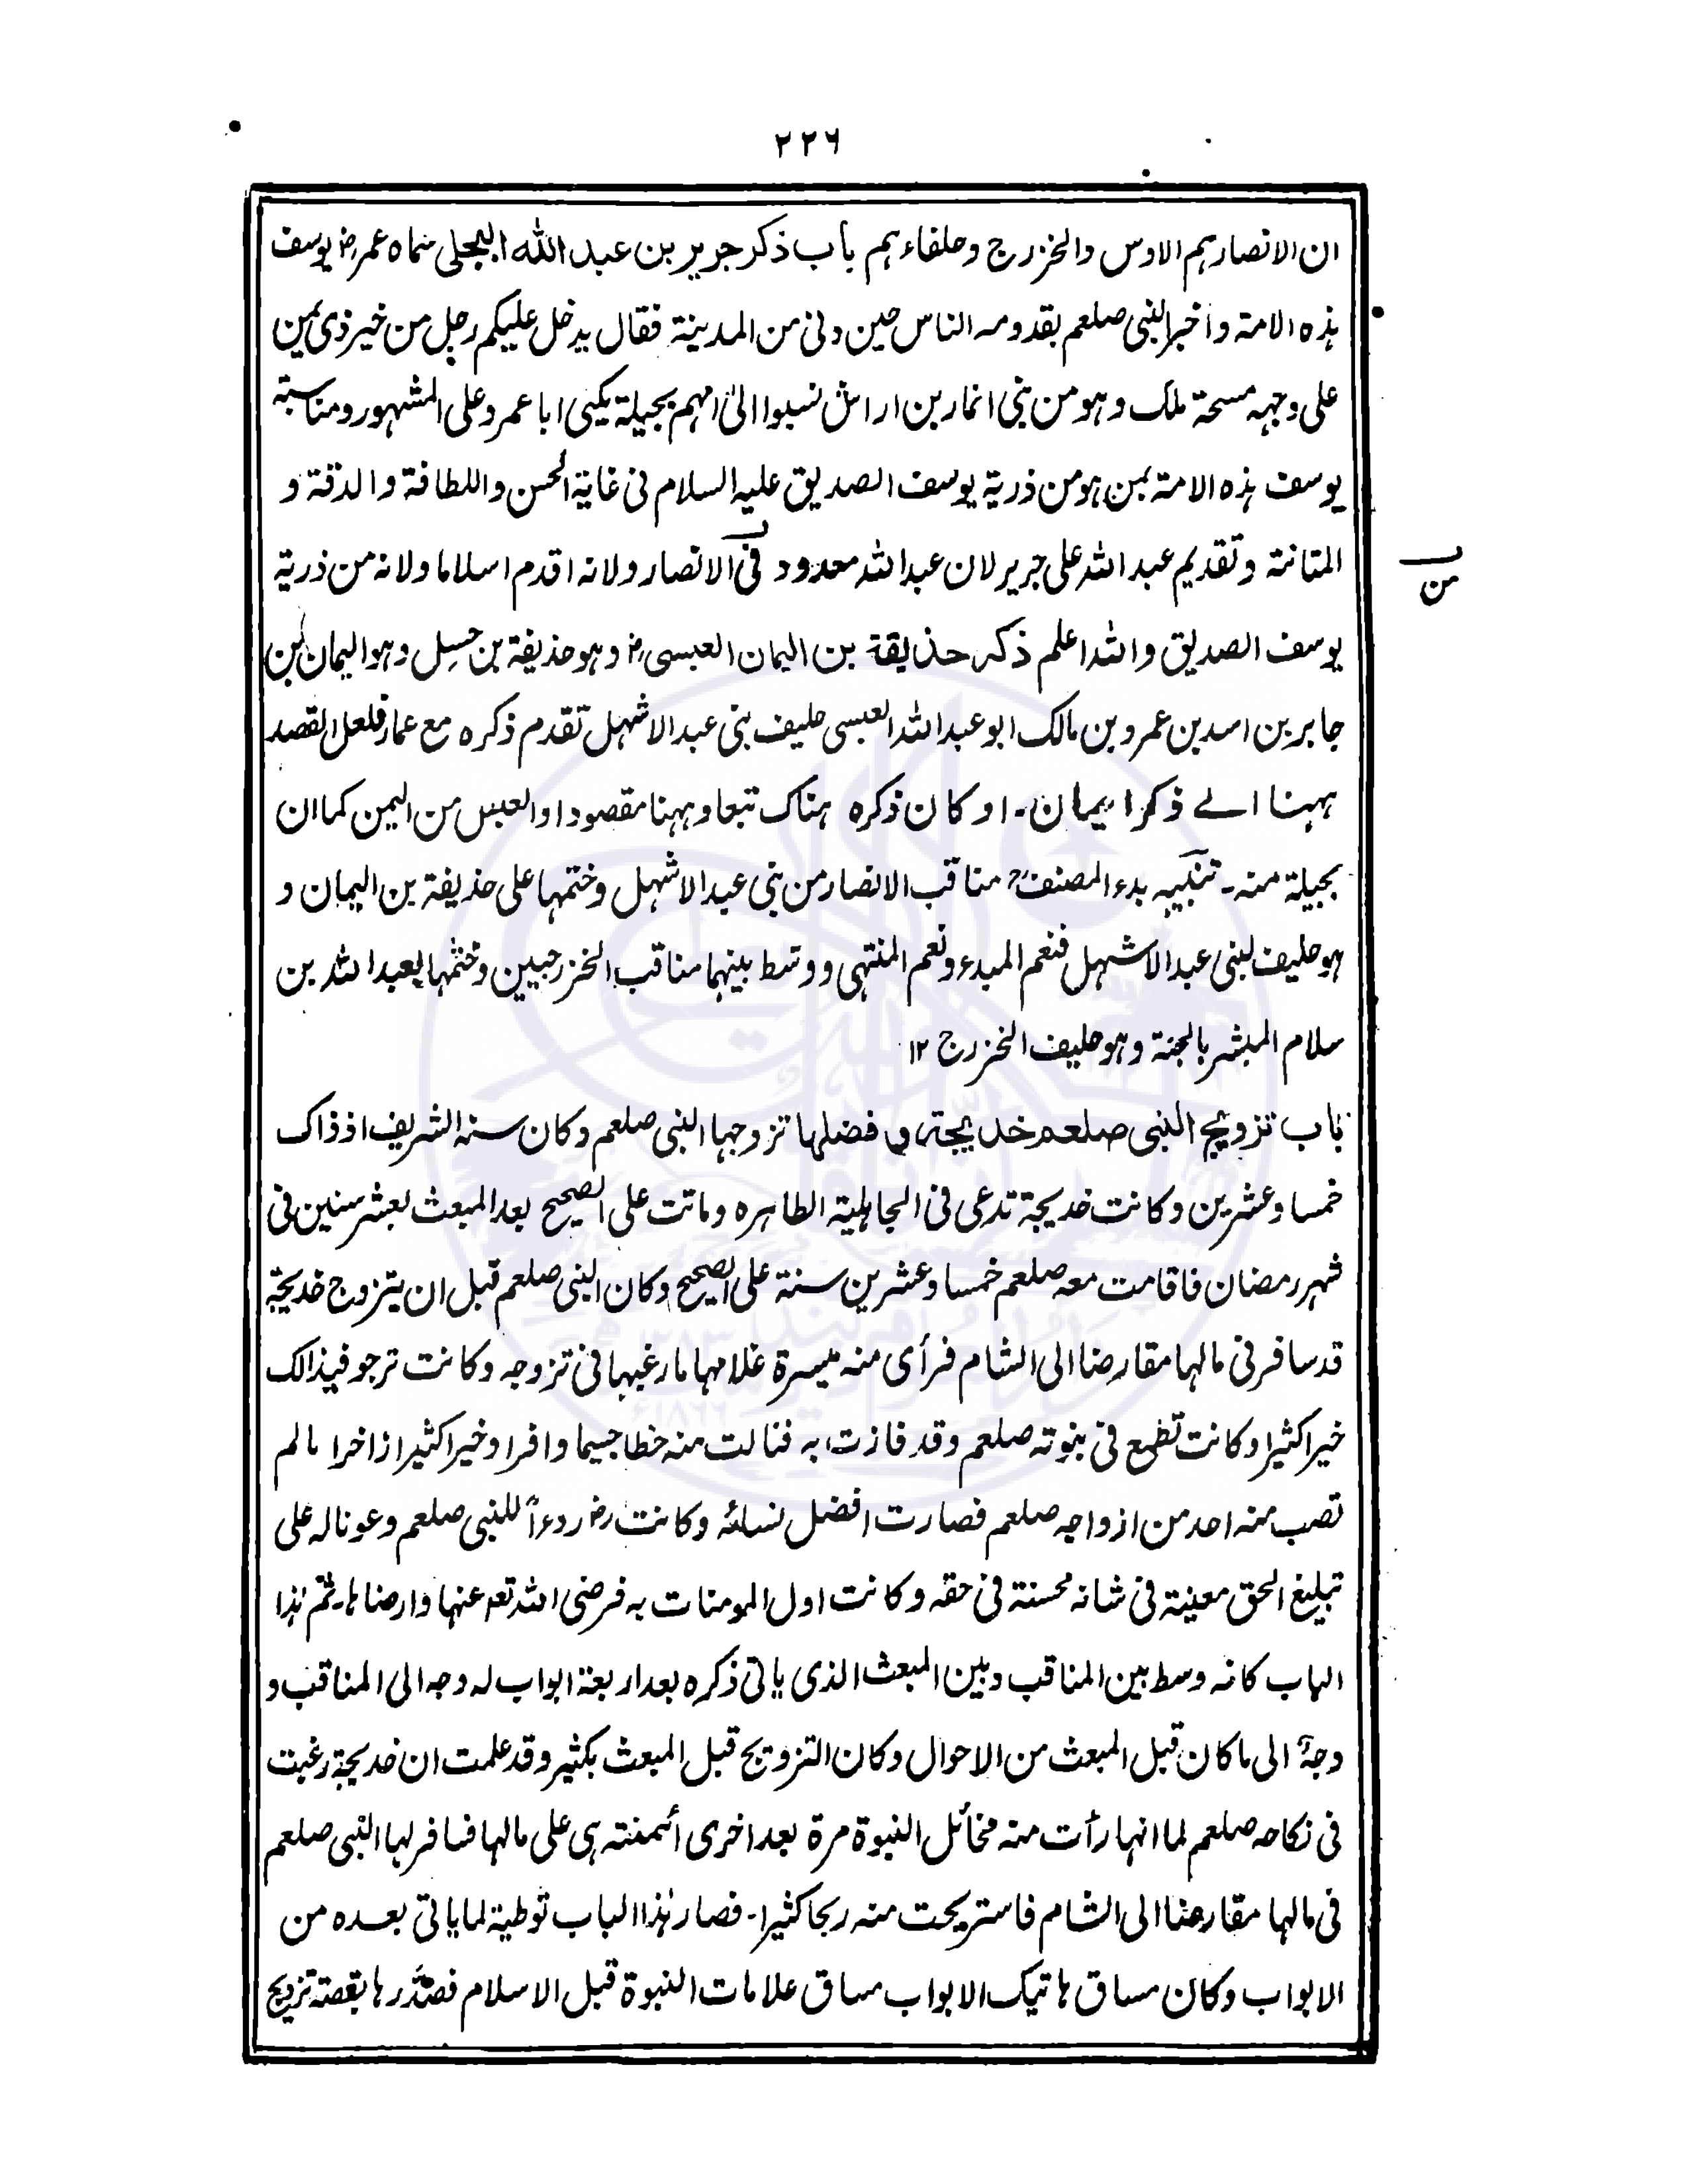 ٢٢٦
ان الانصار ہم الاوس والخزرج وحلفاء ہم باب ذکر جریر بن عبد اللہ البجلی سماہ عمر رض یوسف
ہذہ الامۃ واخبر النبی صلعم بقدومہ الناس حین دنی من المدینۃ فقال یدخل علیکم رجل من خیر ذی یمن
علی وجہہ مسحۃ ملک وہو من بنی انمار بن اراش نسبوا الی امہم بجیلۃ یکنی ابا عمرو علی المشہور ومناسبۃ
یوسف ہذہ الامۃ بمن ہو من ذریۃ یوسف الصدیق علیہ السلام فی غایۃ الحسن واللطافۃ والدقۃ و
المتانۃ وتقدیم عبد اللہ علی جریر لان عبد اللہ معدود فی الانصار ولانہ اقدم اسلاما ولانہ من ذریۃ
من
یوسف الصدیق واللہ اعلم ذکر حذیفۃ بن الیمان العبسی رض وہو حذیفۃ بن حسیل وہو الیمان بن
جابر بن اسد بن عمرو بن مالک ابو عبد اللہ العبسی حلیف بنی عبد الاشہل تقدم ذکرہ مع عمار فلعل القصد
ہہنا الے ذکر ایمان۔ او کان ذکرہ ہناک تبعا وہہنا مقصودا والعبس من الیمن کما ان
بجیلۃ منہ۔ تنبیہ بدء المصنف رح مناقب الانصار من بنی عبد الاشہل وختمہا علی حذیفۃ بن الیمان و
ہو حلیف لبنی عبد الاشہل فنعم المبدء ونعم المنتہی ووسط بینہما مناقب الخزرجیین وختمہا بعبد اللہ بن
سلام المبشر بالجنۃ وہو حلیف الخزرج ١٢
باب تزویج النبی صلعم خدیجۃ رض وفضلہا تزوجہا النبی صلعم وکان سنہ الشریف اذ ذاک
خمسا وعشرین وکانت خدیجۃ تدعی فی الجاہلیۃ الطاہرہ وماتت علی الصحیح بعد المبعث بعشر سنین فی
شہر رمضان فاقامت معہ صلعم خمسا وعشرین سنۃ علی الصحیح وکان النبی صلعم قبل ان یتزوج خدیجۃ
قد سافر فی مالہا مقارضا الی الشام فرأی منہ میسرۃ غلامہا ما رغبہا فی تزوجہ وکانت ترجو فیذالک
خیرا کثیرا وکانت تطمع فی نبوتہ صلعم وقد فازت بہ فنالت منہ خطا جسیما وافرا وخیرا کثیرا زاخرا مالم
تصب منہ احد من ازواجہ صلعم فصارت افضل نسائہ وکانت رض ردءاً للنبی صلعم وعونا لہ علی
تبلیغ الحق معینۃ فی شانہ محسنۃ فی حقہ وکانت اول المومنات بہ فرضی اللہ تعہ عنہا وارضاہا۔ ثم ہذا
الباب کانہ وسط بین المناقب وبین المبعث الذی یاتی ذکرہ بعد اربعۃ ابواب لہ وجہ الی المناقب و
وجہٌ الی ما کان قبل المبعث من الاحوال وکان التزویج قبل المبعث بکثیر وقد علمت ان خدیجۃ رغبت
فی نکاحہ صلعم لما انہا رأت منہ مخائل النبوۃ مرۃ بعد اخری أئتمنتہ ہی علی مالہا فسافر لہا النبی صلعم
فی مالہا مقارضا الی الشام فاستربحت منہ ربحا کثیرا۔ فصار ہذا الباب توطیۃ لما یاتی بعدہ من
الابواب وکان مساق ہاتیک الابواب مساق علامات النبوۃ قبل الاسلام فصَدَّرہا بقصۃ تزویج